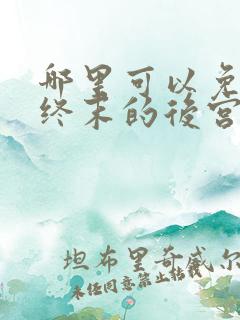 哪里可以免
终末的后宫
坦布里奇威尔
未经同意禁止转载